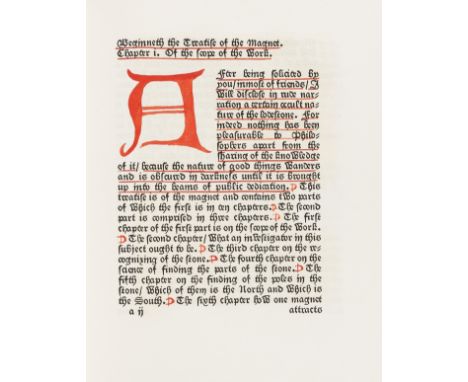 Beginneth the Treatise of the Magnet.
Chapter 1. Of the scope of the Work.
After being solicited by
you/ inmost of friends/ I
Will disclose in rude nar-
ration a certain occult na-
ture of the lodestone. For
indeed nothing has been
pleasurable to Philo-
sophers apart from the
sharing of the knowledge
of it/ because the nature of good things Wanders
and is obscured in darkness until it is brought
up into the beams of public dedication. This
treatise is of the magnet and contains two parts
of Which the first is in ten chapters. The second
part is comprised in three chapters. The first
chapter of the first part is on the scope of the Work.
The second chapter/ What an investigator in this
subject ought to be. The third chapter on the re
cognizing of the stone. The fourth chapter on the
science of finding the parts of the stone. The
fifth chapter on the finding of the poles in the
stone/ Which of them is the North and Which is
the South. The sixth chapter how one magnet
a ij attracts